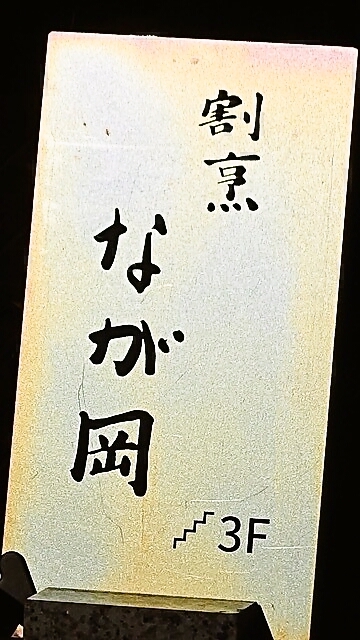 割烹
なが岡
3F